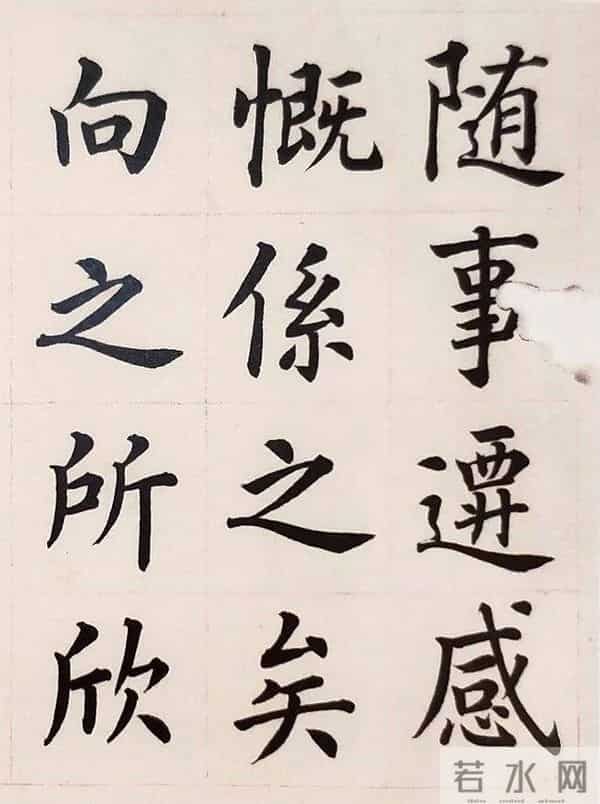 随事遷感
慨係之矣
向之所欣
若水网